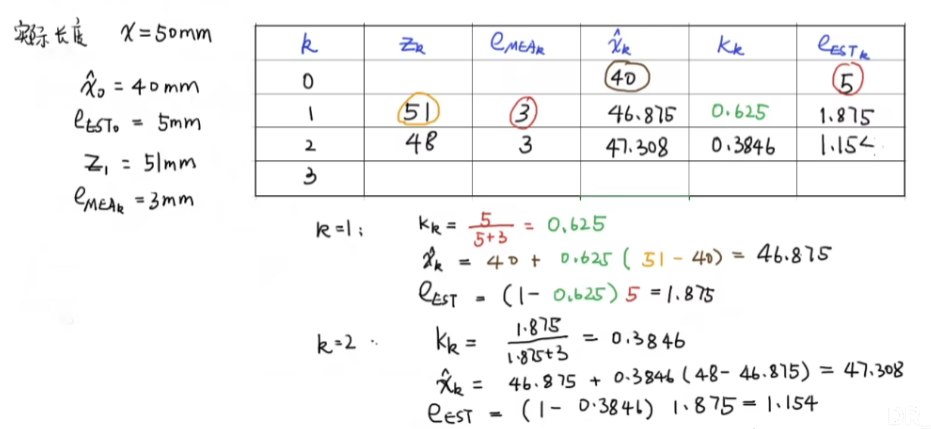 实际长度 x = 50mm
x̂₀ = 40mm
e_EST₀ = 5mm
z₁ = 51mm
e_MEAₖ = 3mm
k zₖ e_MEAₖ x̂ₖ Kₖ e_ESTₖ
0 40 5
1 51 3 46.875 0.625 1.875
2 48 3 47.308 0.3846 1.154
3
k=1: Kₖ = 5/(5+3) = 0.625
x̂ₖ = 40 + 0.625 (51 - 40) = 46.875
e_EST = (1 - 0.625) 5 = 1.875
k=2: Kₖ = 1.875/(1.875+3) = 0.3846
x̂ₖ = 46.875 + 0.3846 (48 - 46.875) = 47.308
e_EST = (1 - 0.3846) 1.875 = 1.154